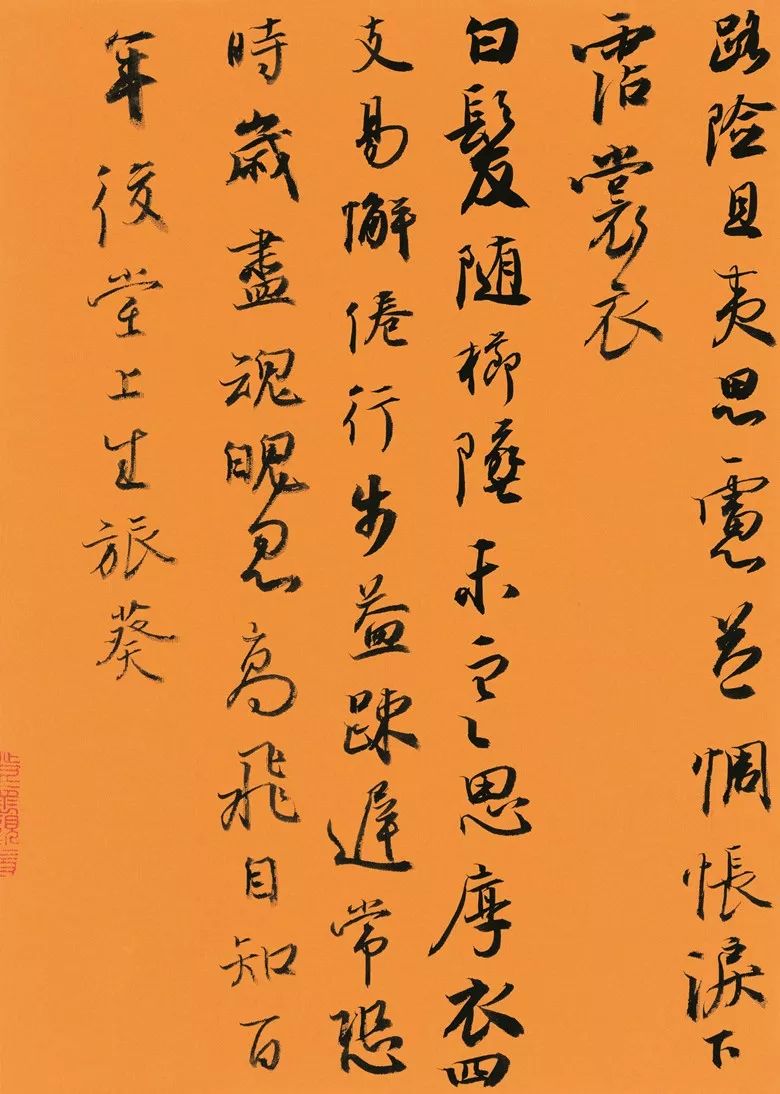 路險且夷思慮益惆悵淚下
霑裳衣
白髮随櫛墜未寒思厚衣四
支易懈倦行步益踈遲常恐
時歲盡魂魄忽高飛自知百
年後堂上生旅葵